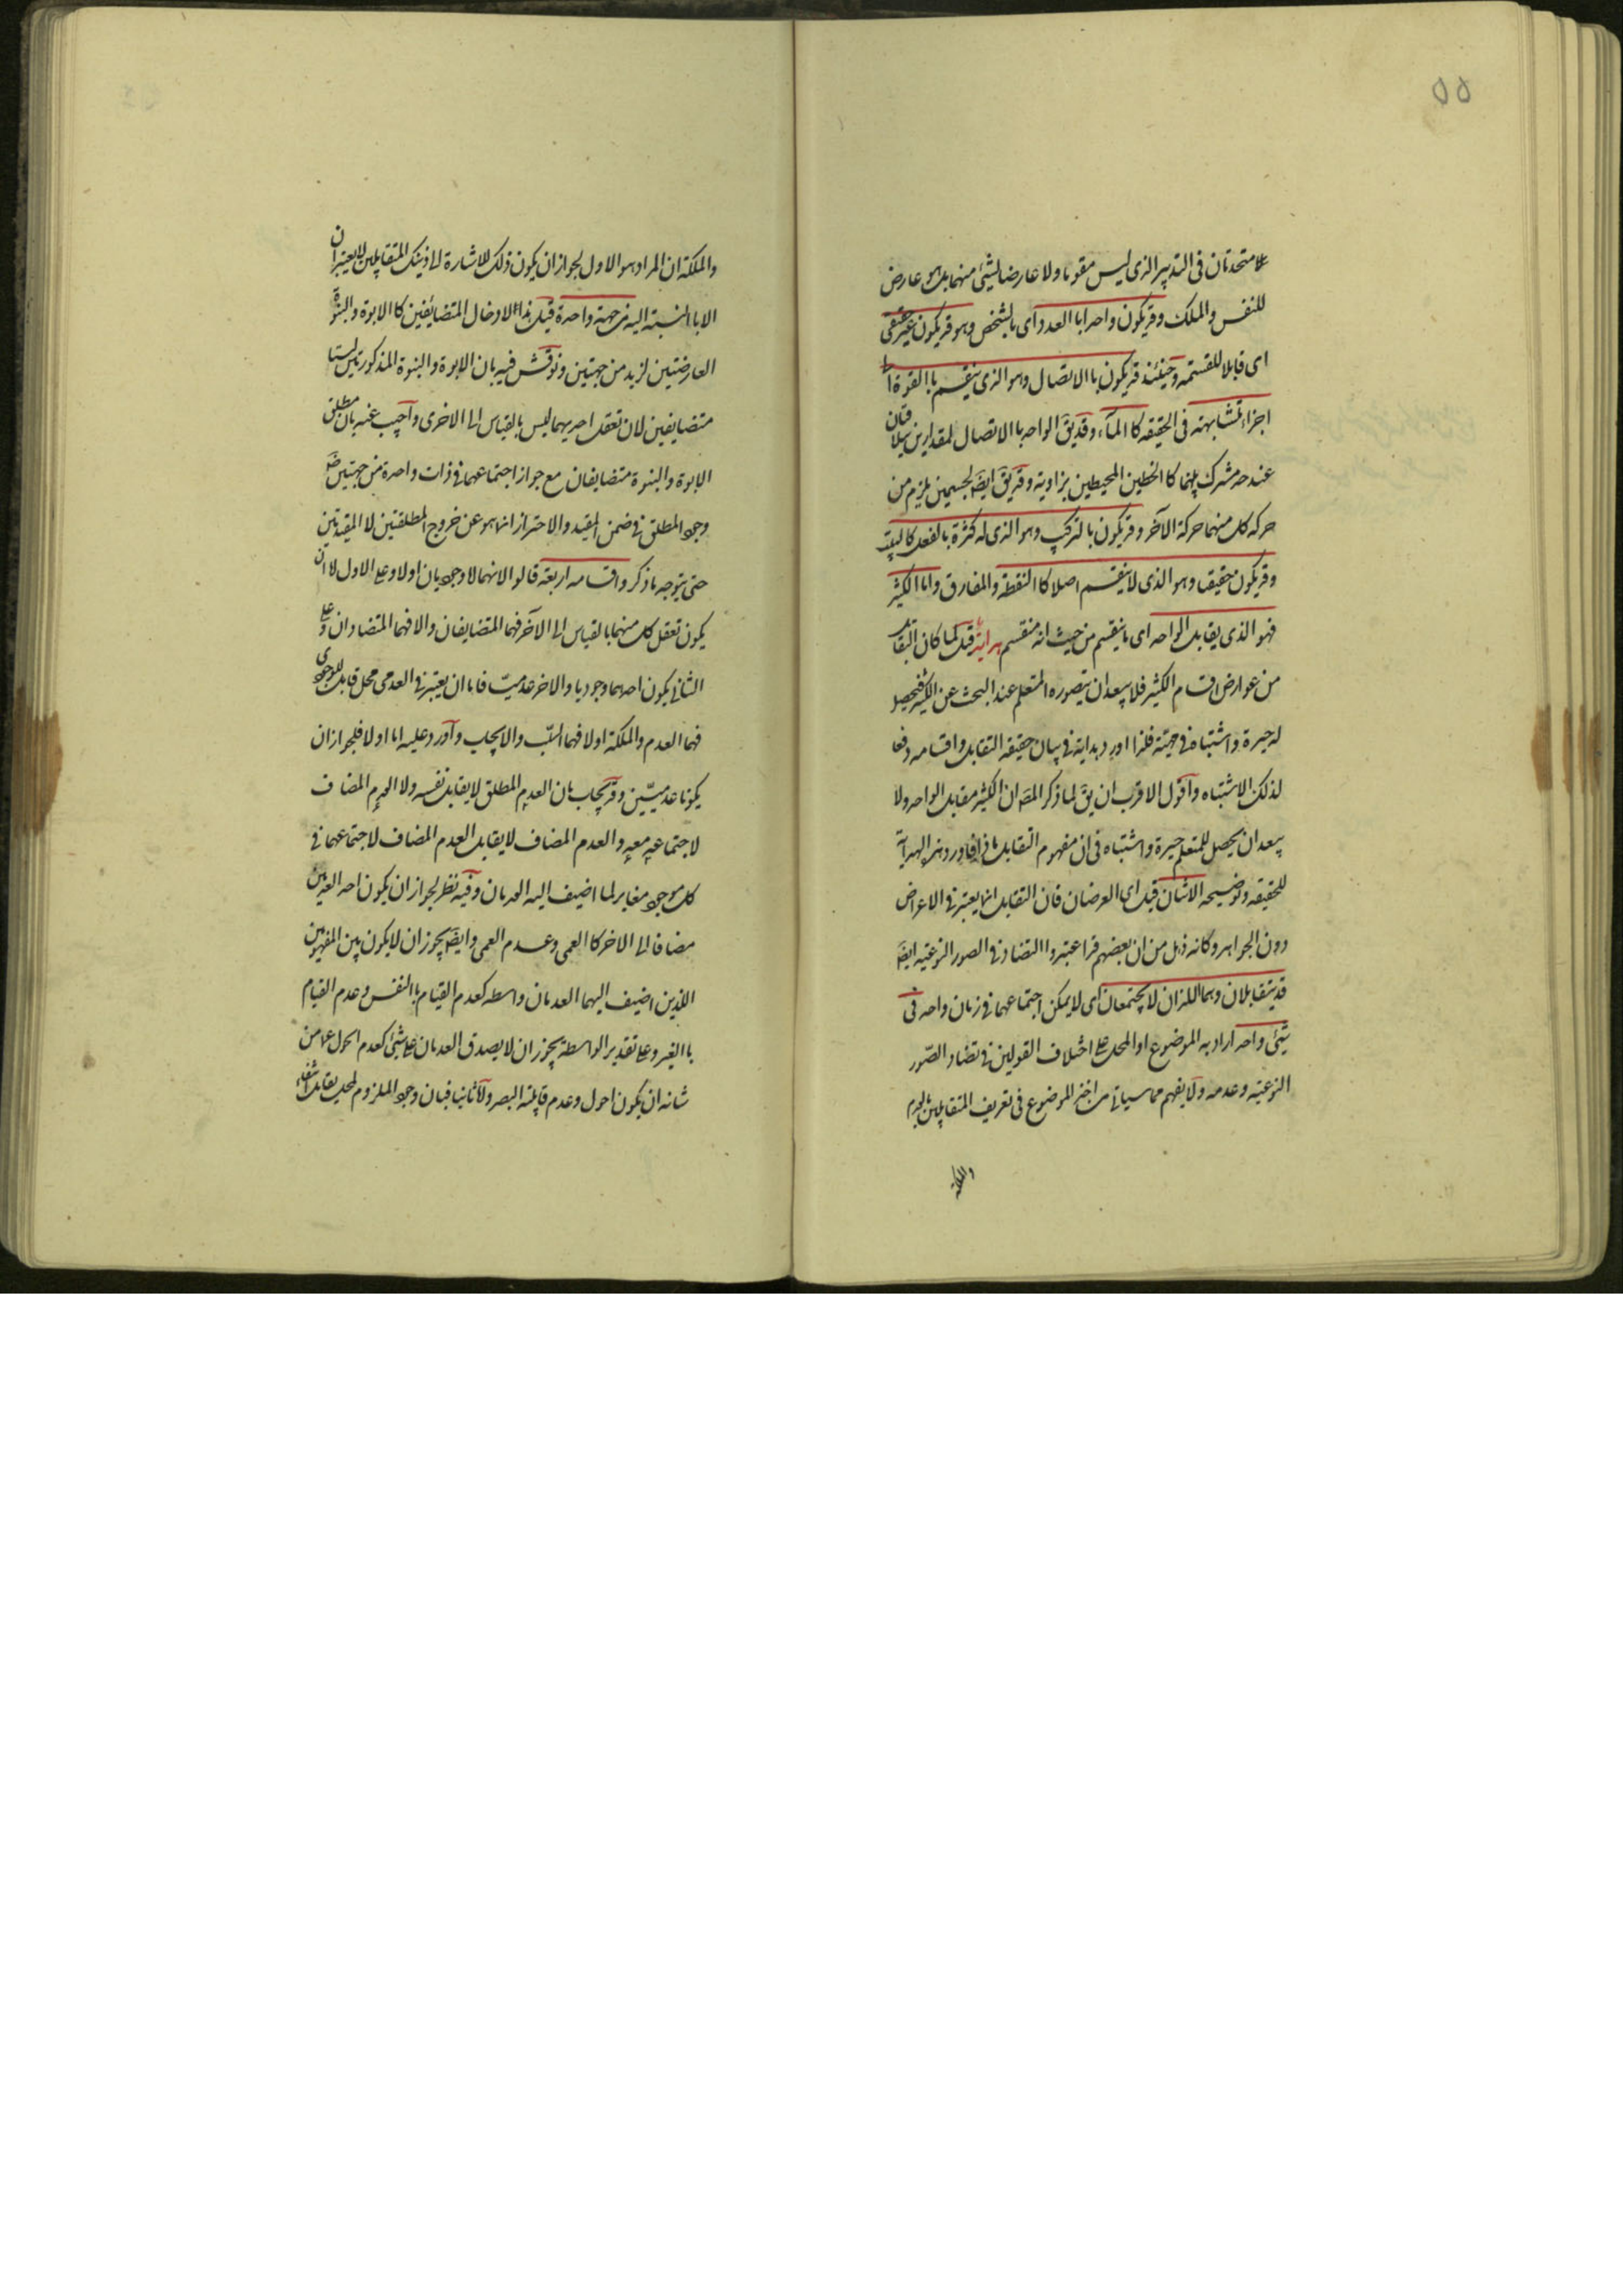 ۵۵
متحدتان فى التدبير الذى ليس مقوما ولا عارضا لشئ منهما بل هو عارض
للنفس والملك وقد يكون واحدا باالعدد اى بالشخص وهو قد يكون غير حقيقى
اى قابلا للقسمة وحينئذ قد يكون باالاتصال وهو الذى ينقسم باالقوة الى
اجزاء متشابهة فى الحقيقة كاالمآء وقد يقَ الواحد باالاتصال لمقدارين يتلاقيان
عند حد مشترك بينهما كاالخطين المحيطين بزاوية وقد يقَ ايضَ لجسمين يلزم من
حركة كل منهما حركة الآخر وقد يكون بالتركيب وهو الذى له كثرة بالفعل كالبيت
وقد يكون حقيقيا وهو الذى لا ينقسم اصلا كاالنقطة والمفارق واما الكثير
فهو الذى يقابل الواحد اى ما ينقسم من حيث انه منقسم هداية قيل لما كان التقابل
من عوارض اقسام الكثير فلا يبعد ان يتصوره المتعلم عند البحث عن الكثير فيحصل
له حيرة واشتباه فى حقيقته فلذا اورد هداية فى بيان حقيقة التقابل واقسامه دفعا
لذلك الاشتباه واقول الاقرب ان يقَ لما ذكر المصَ ان الكثير مقابل الواحد ولا
يبعد ان يحصل للمتعلم حيرة واشتباه فى ان مفهوم التقابل ماذا فاورد هذه الهداية
لتحقيقه وتوضيحه الاثنان قيل اى العرضان فان التقابل انما يعتبر فى الاعراض
دون الجواهر وكانه ذهل من ان بعضهم قد اعتبروا التضاد فى الصور النوعية ايضَ
قد يتقابلان وهما اللذان لا يجتمعان اى لا يمكن اجتماعهما فى زمان واحد فى
شئ واحد اراد به الموضوع او المحل على اختلاف القولين فى تضاد الصّور
النوعية وعدمه ولا يفهم مما سياتى من اخذ الموضوع فى تعريف المتقابلين بالعدم
والملكة
والملكة ان المراد هو الاول لجواز ان يكون ذلك للاشارة الى ذينك المتقابلين لا يعتبران
الا باالنسبة اليه من جهة واحدة قيل هذا لادخال المتضايفين كاالابوة والبنوة
العارضتين لزيد من جهتين ونوقش فيه بان الابوة والبنوة المذكورتين ليستا
متضايفين لان تعقل احديهما ليس بالقياس الى الاخرى واجيب عنه بان مطلق
الابوة والبنوة متضايفان مع جواز اجتماعهما فى ذات واحدة من جهتين
وجود المطلق فى ضمن المقيد والاحتراز انما هو عن خروج المطلقتين لا المقيدتين
حتى يتوجه ما ذكر واقسامه اربعة قالوا لانهما لا وجوديان اولا وعلى الاول لا ان
يكون تعقل كل منهما بالقياس الى الآخر فهما المتضايفان والا فهما المتضادان وعلى
الثانى يكون احدهما وجوديا والاخر عدميّا فاما ان يعتبر فى العدمى محل قابل للوجودى
فهما العدم والملكة اولا فهما السلب والايجاب واورد عليه اما اولا فلجواز ان
يكونا عدميّين وقد يجاب بان العدم المطلق لا يقابل نفسه ولا العدم المضاف
لاجتماعه معه والعدم المضاف لا يقابل العدم المضاف لاجتماعهما فى
كل موجود مغاير لما اضيف اليه العدمان وفيه نظر لجواز ان يكون احد العدمين
مضافا الى الاخر كاالعمى وعدم العمى وايضَ يجوز ان لا يكون بين المفهومين
اللذين اضيف اليهما العدمان واسطة كعدم القيام باالنفس وعدم القيام
باالغير وعلى تقدير الواسطة يجوز ان لا يصدق العدمان على شئ كعدم الحول عما من
شانه ان يكون احول وعدم قابلية البصر ولا ثانيا فبان وجود الملزوم لمحل يقابل انتفاء